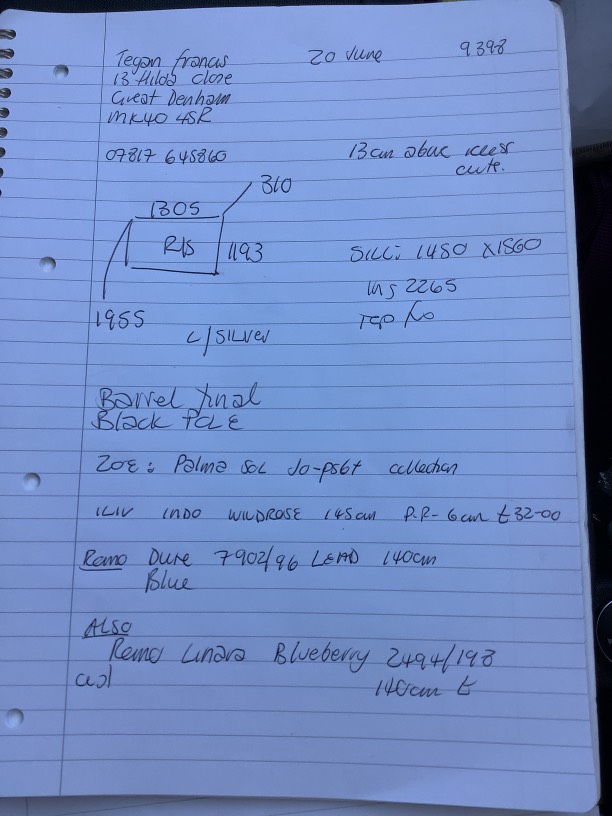 Tegan Francis 20 June 9398
13 Hilda Close
Great Denham
MK40 4SR
07817 645860
13cm above
cute.
310
1305
R/S 1193
1955
SILL: 1480 X1860
2265
C/SILVER
Barrel final
Black POLE
ZOE: Palma SOL JO-PS6t collection
ILIV INDO WILDROSE 145cm P.R- 6cm £32-00
Remo Dure 7902/96 LEAD 140cm
Blue
ALSO
Remo Linara Blueberry 2494/198
140cm £